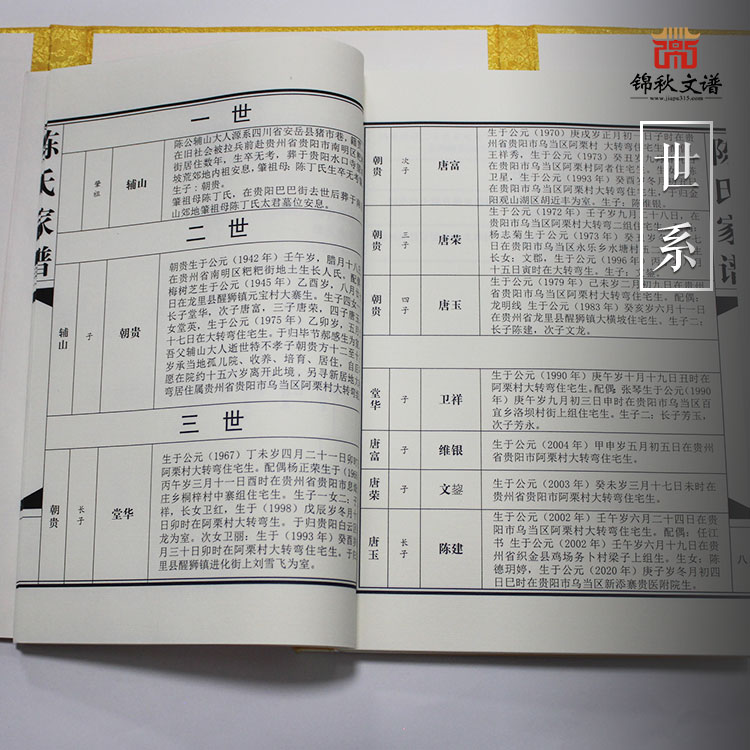 锦秋文谱
www.jiapu315.com
世系
陈氏家谱
一世
肇祖
辅山
陈公辅山大人源系四川省安岳县猪市巷，
在旧社会被拉兵前赴贵州省贵阳市南明区
街居住数年，生卒无考，葬于贵阳水口寺
坡荒郊地内祖安息。肇祖母：陈丁氏生卒无考
生子：朝贵。
肇祖母陈丁氏，在贵阳巴巴街去世后葬于
山郊地肇祖母陈丁氏太君墓位安息。
二世
辅山
子
朝贵
朝贵生于公元（1942 年）壬午岁，腊月十八
在贵州省南明区粑粑街地土生长人氏。配
梅树芝生于公元（1945 年）乙酉岁，八月
日在龙里县醒狮镇元宝村大寨生。生子四女
长子堂华，次子唐富，三子唐荣，四子唐
女堂英，生于公元（1975 年）乙卯岁，五月
十七日在大转弯住宅生。于归毕节郝感生为
吾父辅山大人逝世特不孝子朝贵方十二至
岁承当地孤儿院、收养、培育、居住，自
愿在院约十五六岁离开此境，另寻新居地
弯居住属贵州省贵阳市乌当区阿栗村大转弯
三世
朝贵
长子
堂华
生于公元（1967）丁未岁四月二十一日卯时
阿栗村大转弯住宅生。配偶杨正荣生于（196
丙午岁三月十一日酉时在贵州省贵阳市息烽
庄乡桐梓村中寨组住宅生。生子一女二：
祥，长女卫红，生于（1998）戊辰岁冬月
日卯时在阿栗村大转弯生。于归贵阳白云
龙为室。次女卫丽：生于（1993 年）癸酉
月三十日卯时在阿栗村大转弯住宅生。于归
里县醒狮镇进化街上刘雪飞为室。
朝贵
次子
唐富
生于公元（1970）庚戌岁正月初一日子时在
州省贵阳市乌当区阿栗村 大转弯住宅生。
王祥秀，生于公元（1973）癸丑岁
在贵阳市乌当区阿栗村阿者住宅生。
卫星，生于公元（1993 年）癸酉岁冬月
贵阳市乌当区阿栗村大转弯住宅生。于归
阳观山湖区胡近丰为室。生子：陈维银。
朝贵
三子
唐荣
生于公元（1972 年）壬子岁九月二十八日，在
州省贵阳市乌当区阿栗村大转弯二组住宅生。
杨志菊生于公元（1973 年）癸丑岁
日在贵阳市乌当区永乐乡水塘村五
长女：文郡，生于公元（1996 年）丙
十五日寅时在大转弯生。生子：
朝贵
四子
唐玉
生于公元（1979 年）己未岁二月初九日在贵州
省贵阳市乌当区阿栗村大转弯住宅生。配偶：
龙明线 生于公元（1983 年）癸亥岁六月十一日
在贵州省龙里县醒狮镇大横坡住宅生。生子二：
长子陈建，次子文龙。
堂华
子
卫祥
生于公元（1990 年）庚午岁十月十九日丑时在
阿栗村大转弯住宅生。配偶：张琴生于公元（1990
年）庚午岁三月初九日申时在贵阳市乌当区百
宜乡洛坝村街上组住宅生。生子二：长子芳玉，
次子芳永。
唐富
子
维银
生于公元（2004 年）甲申岁五月初五日在贵州
省贵阳市乌当区阿栗村大转弯住宅生。
唐荣
子
文鋆
生于公元（2003 年）癸未岁三月十七日未时在
贵州省贵阳市乌当区阿栗村大转弯住宅生。
唐玉
长子
陈建
生于公元（2002 年）壬午岁六月二十四日在贵
阳市乌当区阿栗村大转弯住宅生。配偶：任江
书 生于公元（2002 年）壬午岁六月十九日在贵
州省织金县鸡场务卜村梁子上组生。生女：陈
德玥婷，生于公元（2020 年）庚子岁冬月初四
日巳时在贵阳市乌当区新添寨贵医附院生。
八